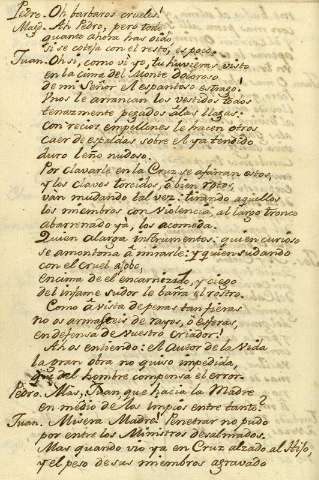 Pedro. Oh barbaros crueles!
Magd. Ah Pedro, pero todo
quanto ahora has oido,
si se coteja con el resto, es poco.
Juan. Oh si, como yo, tu huvieras visto
en la cima del Monte doloroso
de mi Señor el espantoso estrago!
Unos le arrancan los vestidos todos
tenazmente pegados a las llagas:
con recios empellones le hacen otros
caer de espaldas sobre el ya tendido
duro leño nudoso.
Por clavarle en la Cruz se afanan estos,
y los clavos torcidos, o bien rotos,
van mudando tal vez: tirando aquellos
los miembros con violencia, al largo tronco
abarrenado ya, los acomoda.
Quien alarga instrumentos: quien curioso
se amontona à mirarle: y quien sudando
con el cruel
encima de el encarnizado, y ciego
del infame sudor le baña el rostro.
Como à vista de penas tan fieras
no os armasteis de rayos, o esferas,
en defensa de vuestro Criador!
Ah os entiendo: el Autor de la Vida
la gran obra no quiso impedida,
que del hombre compensa el error.
Pedro. Mas, Juan, que hacia la Madre
en medio de los impios entre tanto?
Juan. Misera Madre! Penetrar no pudo
por entre los Ministros desalmados.
Mas quando vio ya en Cruz alzado al Hijo,
y el peso de sus miembros agravado